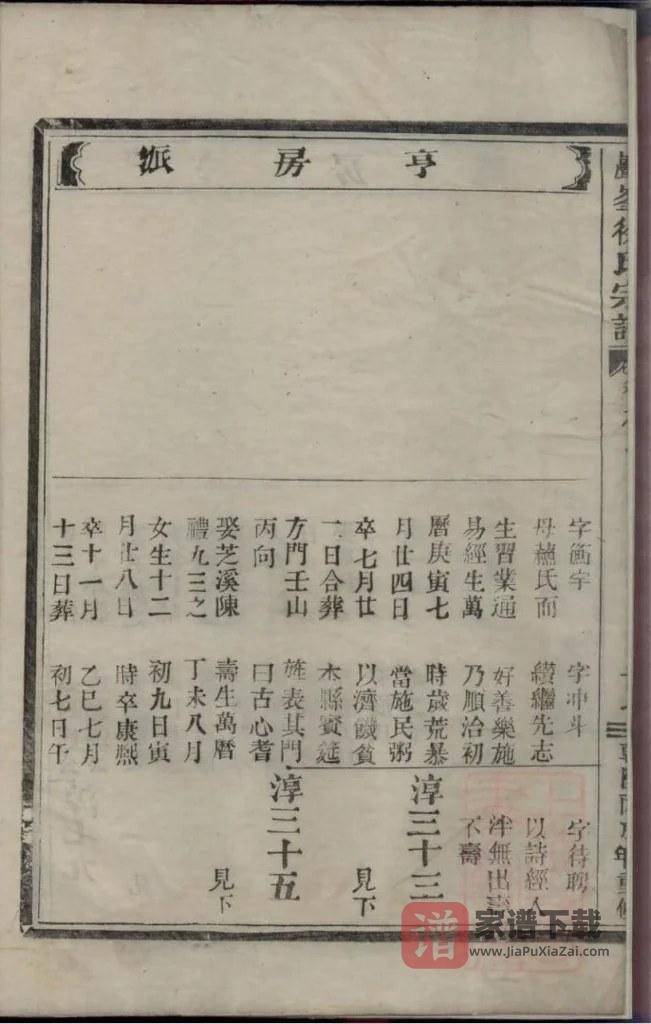 亨房派
字衡宇
母蘓氏而
生習業通
易經生萬
曆庚寅七
月廿四日
卒七月廿
二日合葬
方門壬山
丙向
娶芝溪陳
禮九三之
女生十二
月廿八日
卒十一月
十三日葬
字冲斗
纘繼先志
好善樂施
乃順治初
時歲荒暴
當施民粥
以濟饑貧
本縣賓筵
旌表其門
曰古心耆
壽生萬曆
丁未八月
初九日寅
時卒康熙
乙巳七月
初七日午
字待聘
以詩經入
泮無出
不壽
淳三十三
見下
淳三十五
見下
徐氏宗譜
年重修
谱 家谱下载
www.JiaPuXiaZai.com